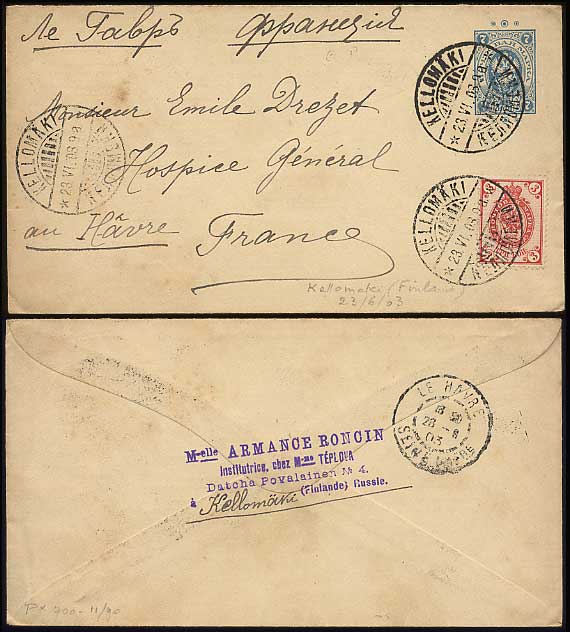 Ле Гавръ Францiя
Monsieur Emile Drezet
Hospice Général
au Hâvre France
KELLOMÄKI
23 VI.03
KELLOMÄKI
23 VI.03
KELLOMÄKI
23 VI.03
7
3
3
Kellomaki (Finland)
23/6/03
LE HAVRE
28 -6
03
SEINE INFRE
Melle ARMANCE RONCIN
Institutrice, chez Mme TÉPLOVA
Datcha Povalainen № 4.
à Kellomäki (Finlande) Russie.